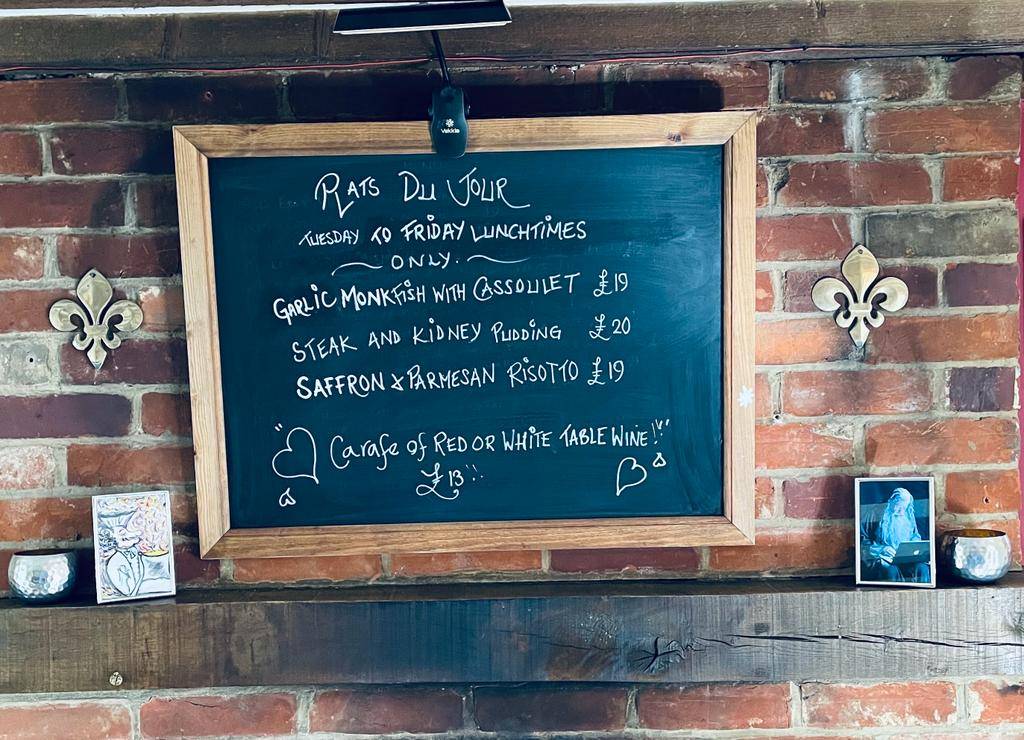 Vekkia
PLATS DU JOUR
TUESDAY TO FRIDAY LUNCHTIMES
ONLY.
GARLIC MONKFISH WITH CASSOULET £19
STEAK AND KIDNEY PUDDING £20
SAFFRON & PARMESAN RISOTTO £19
Carafe of RED OR WHITE TABLE WINE!!
£13!!